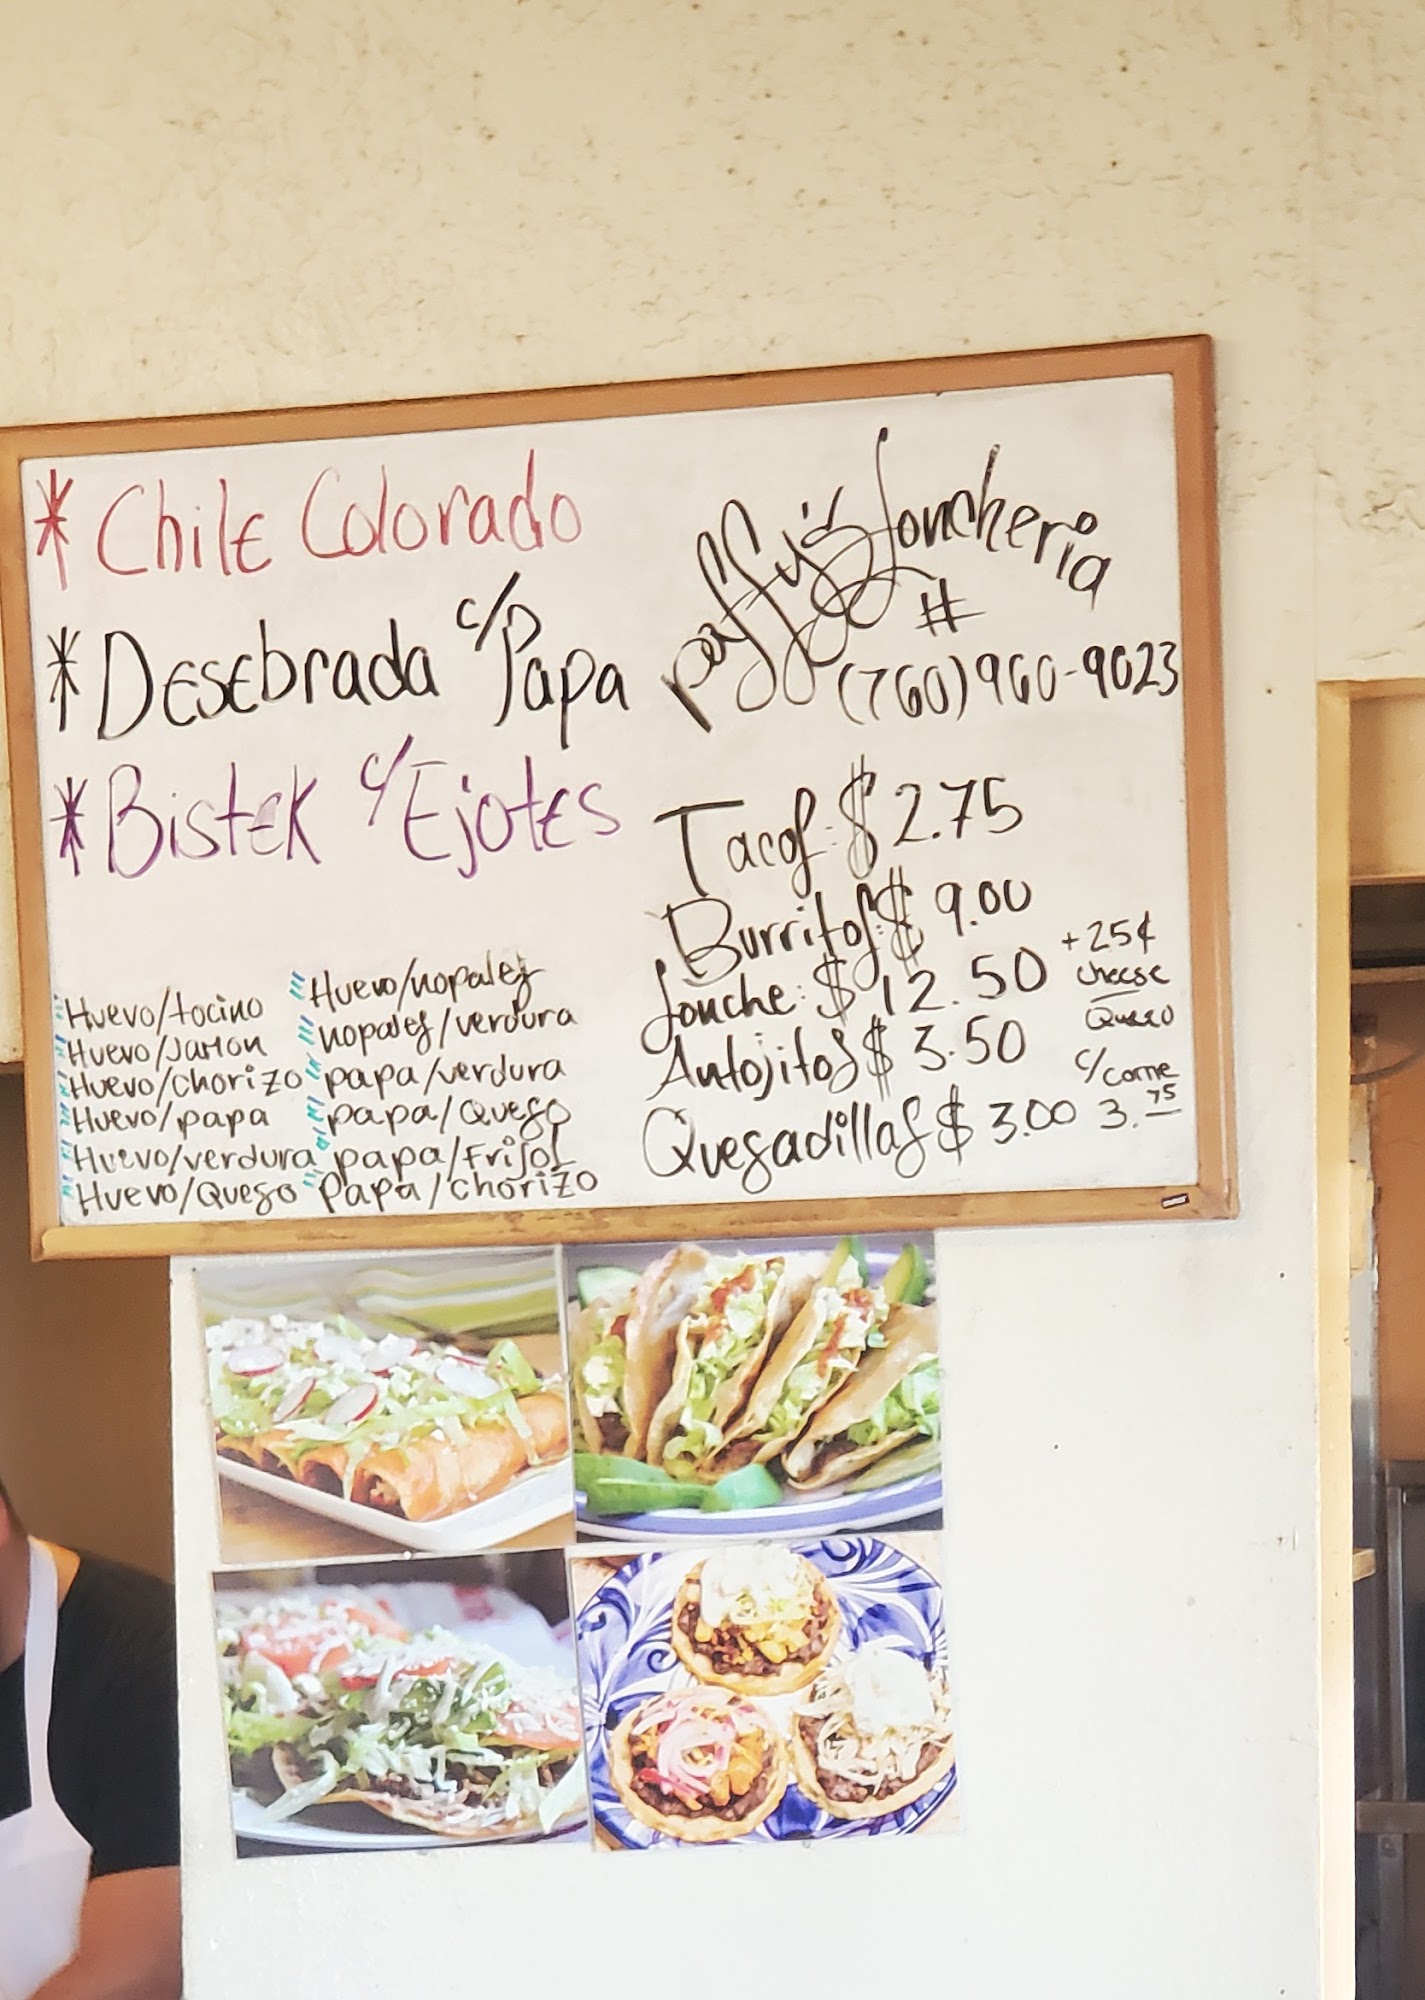 * Chile Colorado
* Desebrada c/Papa
* Bistek c/Ejotes
Huevo/tocino
Huevo/Jamon
Huevo/chorizo
Huevo/papa
Huevo/verdura
Huevo/Queso
Huevo/nopales
nopales/verdura
papa/verdura
papa/Queso
papa/Frijol
Papa/chorizo
paffy's Lonchería
#
(760)960-9023
Tacos: $ 2.75
Burritos: $ 9.00
Lonche: $ 12.50
+ 25¢
cheese
Queso
Antojitos $ 3.50
Quesadillas $ 3.00
c/carne
3.75